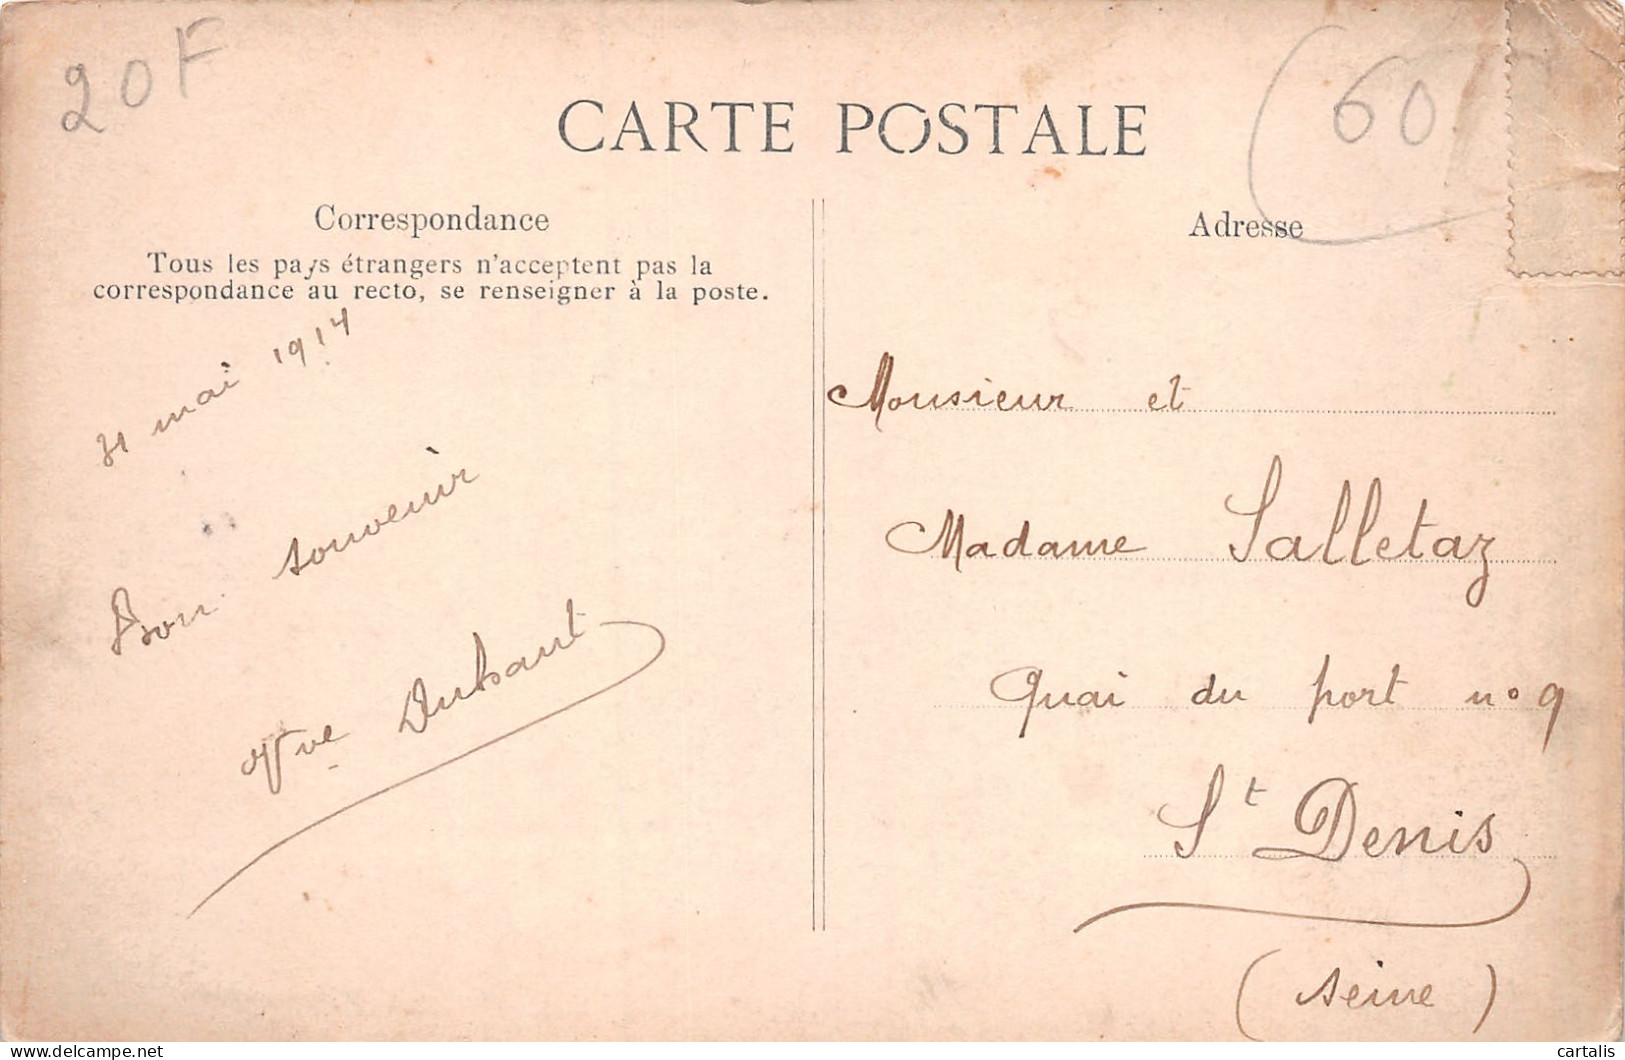 20F
60
CARTE POSTALE
Correspondance
Tous les pays étrangers n'acceptent pas la
correspondance au recto, se renseigner à la poste.
31 mai 1914
Bon souvenir
Vve
Adresse
Monsieur et
Madame Salletaz
Quai du port n° 9
St Denis
(Seine)
delcampe.net
cartalis